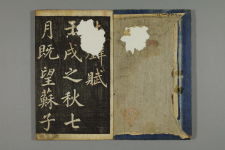 賦
壬戌之秋七
月既望蘇子